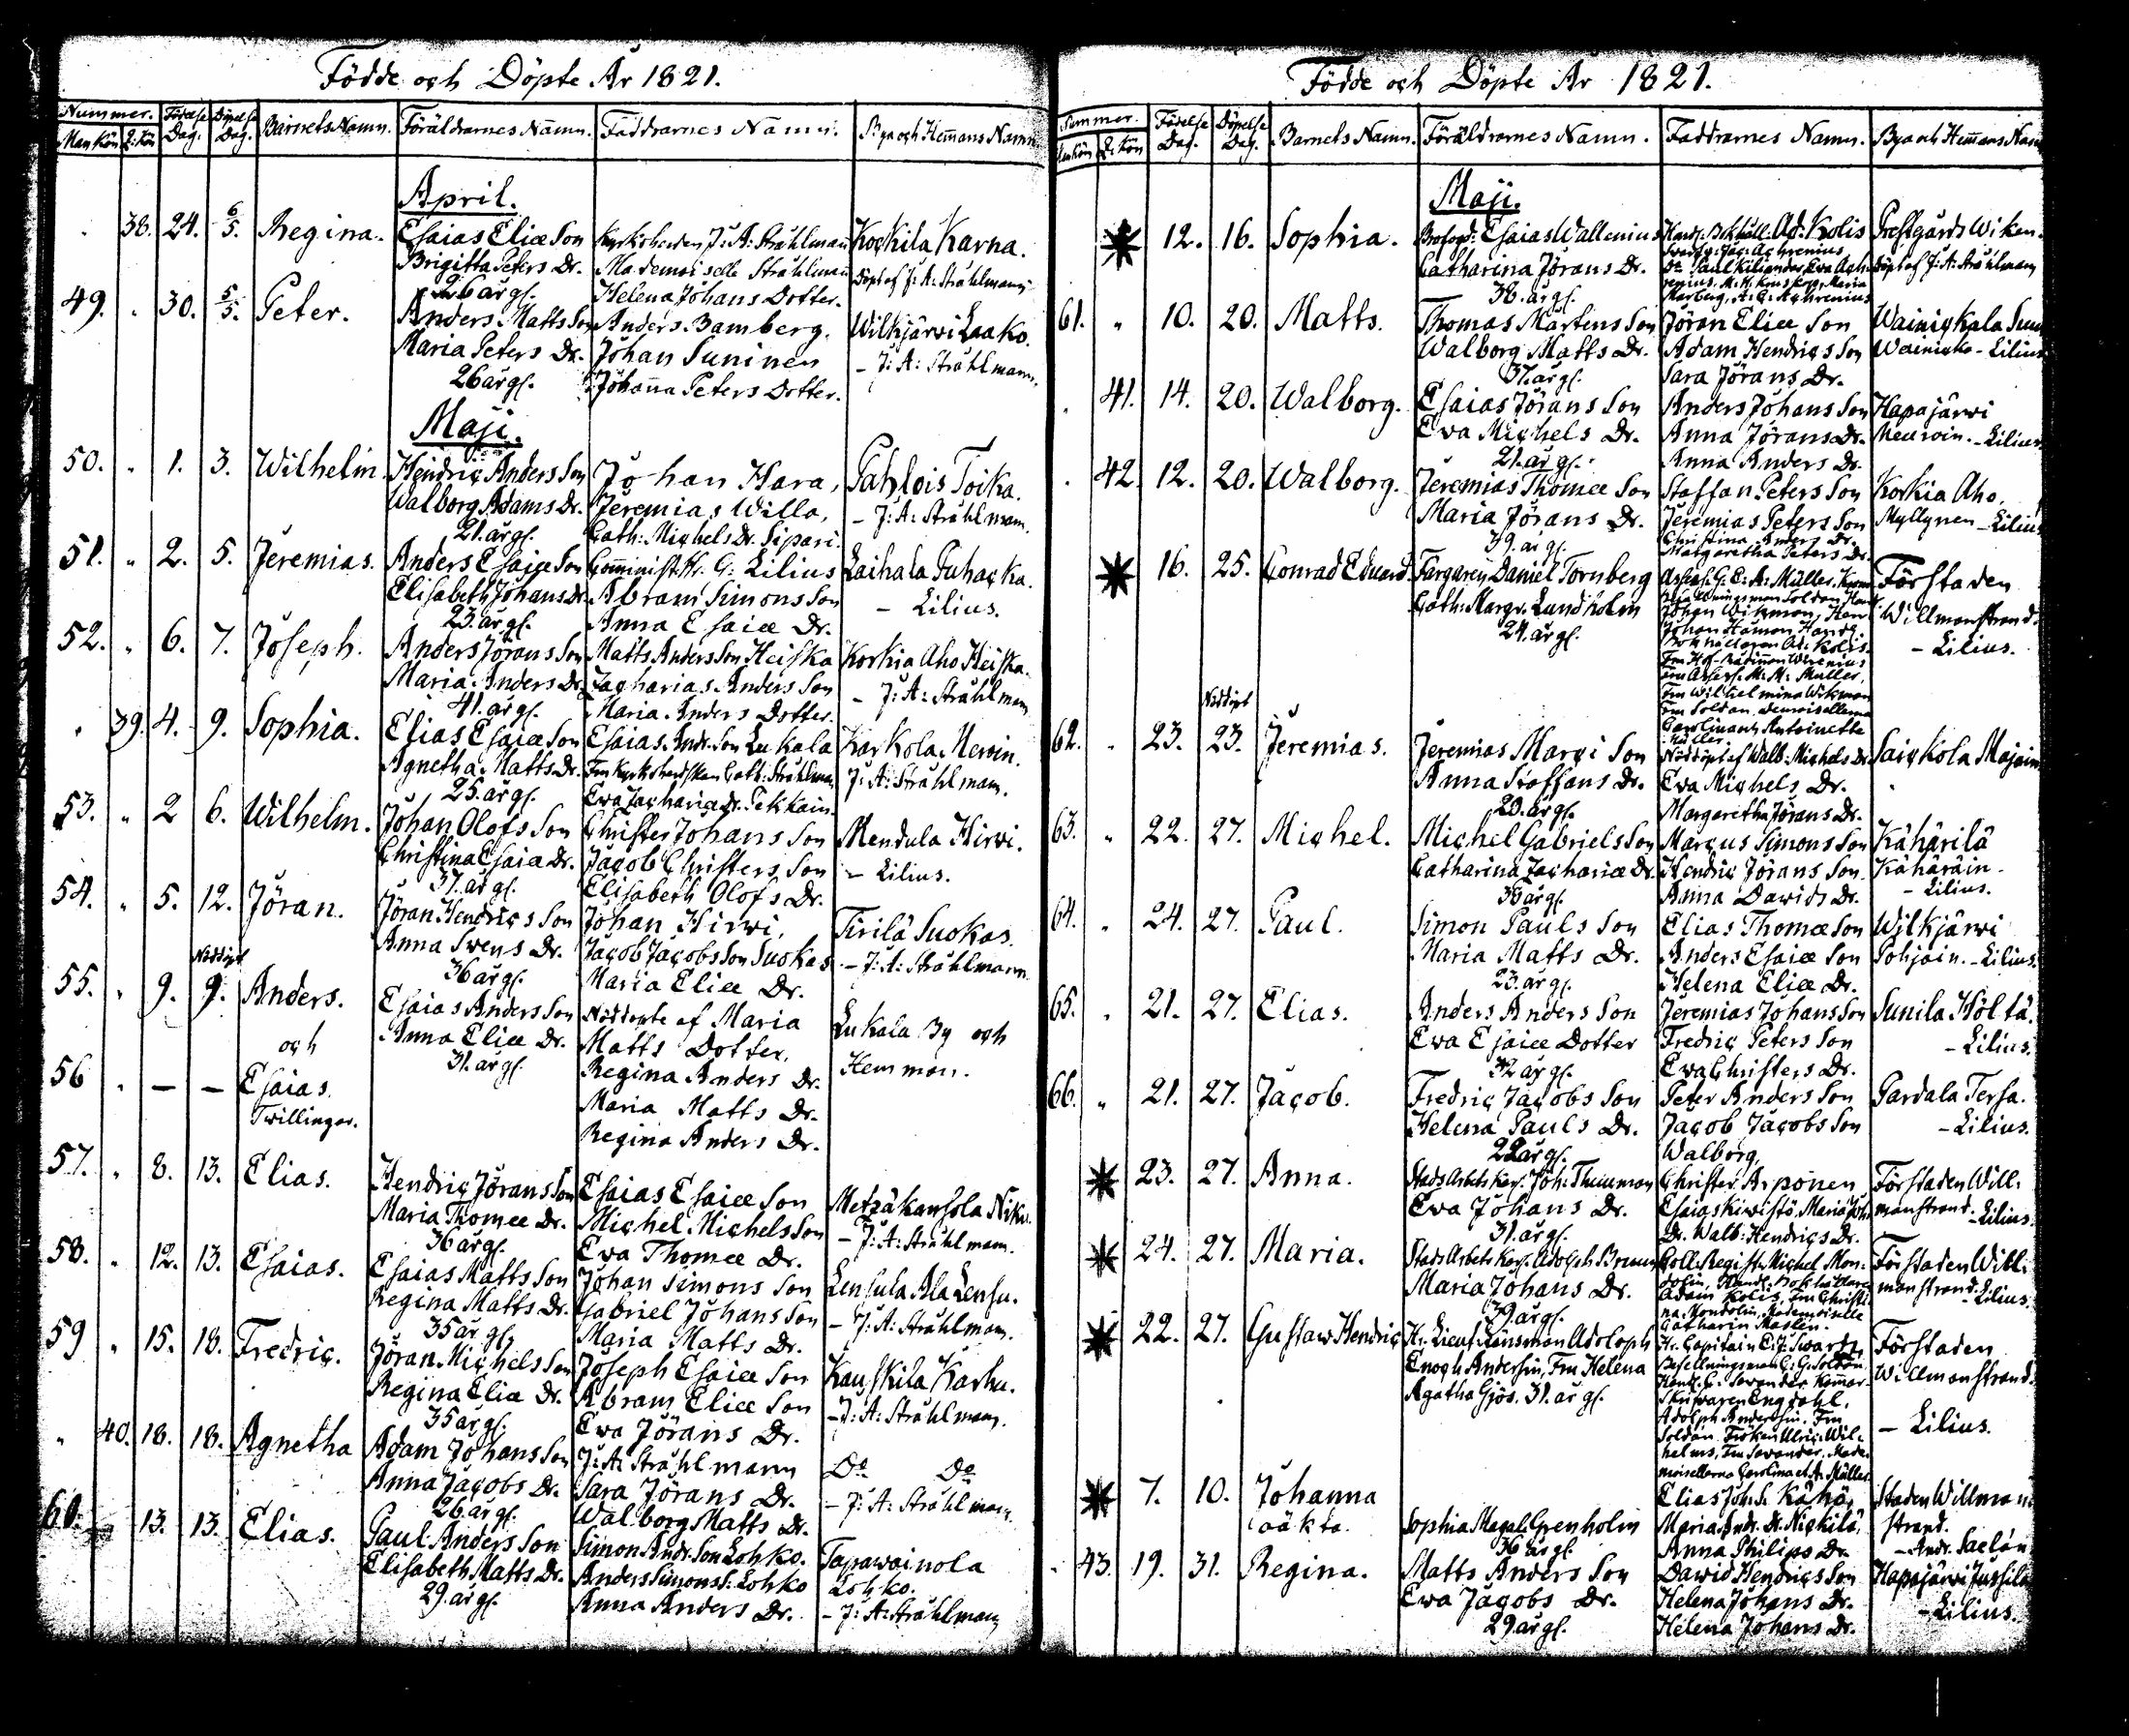 Födde och Döpte År 1821.
Nummer. Födelse Dag. Döpelse Dag. Barnets Namn. Föräldrarnes Namn. Faddrarnes Namn. Bya och Hemans Namn
Man Kön Q: Kön
April.
38. 24. 6/5. Regina. Esaias Eliæ Son Kyrkoherden J: A: Stråhlman Kockila Karna.
Brigitta Peters Dr. Mademoiselle Stråhlman Döpt af J: A: Stråhlmann
26 år gl. Helena Johans Dotter.
49. 30. 5/5. Peter. Anders Matts Son Anders Bamberg. Wilkjärwi Laako.
Maria Peters Dr. Johan Suninen - J: A: Stråhlmann.
26 år gl. Johanna Peters Dotter.
Maji.
50. 1. 3. Wilhelm. Hendric Anders Son Johan Hara, Pahlois Toika.
Walborg Adams Dr. Jeremias Willa, - J: A: Stråhlmann.
21. år gl. Cath: Michels Dr. Sipari.
51. 2. 5. Jeremias. Anders Esaiæ Son Comminist. Hr. G: Lilius Laihala Puhacka.
Elisabeth Johans Dr. Abram Simons Son - Lilius.
23. år gl. Anna Esaiæ Dr.
52. 6. 7. Joseph. Anders Jörans Son Matts Anders Son Heiska Korkia Aho Heiska.
Maria Anders Dr. Zacharias Anders Son - J: A: Stråhlman
41. år gl. Maria Anders Dotter.
39. 4. 9. Sophia. Elias Esaiæ Son Esaias Andr. Son Lukala Karkola Meroin.
Agnetha Matts Dr. Fru Kyrkoherdskan Cath: Stråhlman J: A: Stråhlmann.
25. år gl. Ewa Zachariæ Dr. Pekkain.
53. 2 6. Wilhelm. Johan Olofs Son Christer Johans Son Mendula Hirwi.
Christina Esaiæ Dr. Jacob Christers Son - Lilius.
37. år gl. Elisabeth Olofs Dr.
54. 5. 12. Jöran. Jöran Hendrics Son Johan Hirwi, Tirilä Suokas.
Anna Swens Dr. Jacob Jacobs Son Suokas - J: A: Stråhlmann
36 år gl. Maria Eliæ Dr.
Nöddöpt
55. 9. 9. Anders. Esaias Anders Son Nöddöpte af Maria Lukala By och
och Anna Eliæ Dr. Matts Dotter. Hemman.
31. år gl. Regina Anders Dr.
56 - - Esaias. Maria Matts Dr.
Twillingar. Regina Anders Dr.
57. 8. 13. Elias. Hendric Jörans Son Esaias Esaiæ Son Metzäkansola Niku.
Maria Thomæ Dr. Michel Michels Son - J: A: Stråhlmann.
36 år gl. Ewa Thomæ Dr.
58. 12. 13. Esaias. Esaias Matts Son Johan Simons Son Lensula Ala Lensu.
Regina Matts Dr. Gabriel Johans Son - J: A: Stråhlmann.
35 år gl. Maria Matts Dr.
59 15. 18. Fredric. Jöran Michels Son Joseph Esaiæ Son Kauskila Karhu.
Regina Eliæ Dr. Abram Eliæ Son - J: A: Stråhlmann.
35 år gl. Ewa Jörans Dr.
40. 18. 18. Agnetha Adam Johans Son J: A: Stråhlmann Do Do
Anna Jacobs Dr. Sara Jörans Dr. - J: A: Stråhlmann.
26. år gl. Walborg Matts Dr.
60. 13. 13. Elias. Paul Anders Son Simon Andr. Son Lohko. Tapawainola
Elisabeth Matts Dr. Anders Simons S: Lohko Lohko.
29. år gl. Anna Anders Dr. - J: A: Stråhlmann
Födde och Döpte År 1821.
Nummer. Födelse Dag. Döpelse Dag. Barnets Namn. Föräldrarnes Namn. Faddrarnes Namn. Bya och Hemans Namn
Man Kön Q: Kön
Maji.
12. 16. Sophia. Esaias Wallenius Ad: Kolis Prestgårds Wiken.
Catharina Jörans Dr. Do Paul Kiliander, Ewa Döpt af J: A: Stråhlmann
38. år gl. Marberg, A: C: Achrenius
61. 10. 20. Matts. Thomas Mårtens Son Jöran Eliæ Son Wainickala
Walborg Matts Dr. Adam Hendrics Son - Lilius
37. år gl. Sara Jörans Dr.
41. 14. 20. Walborg. Esaias Jörans Son Anders Johans Son Hapajärwi
Ewa Michels Dr. Anna Jörans Dr. Meuroin. - Lilius
21. år gl. Anna Anders Dr.
42. 12. 20. Walborg. Jeremias Thomæ Son Staffan Peters Son Korkia Aho.
Maria Jörans Dr. Jeremias Peters Son Myllynen - Lilius
39. år gl. Christina Anders Dr.
Margaretha Peters Dr.
16. 25. Conrad Eduard. Färgaren Daniel Tornberg Assess. G: E: A: Müller, Förstaden
Cath: Margr. Lundholm Soldan, Willmanstrand.
24. år gl. Johan Wikman, - Lilius.
Johan Håman, Handl.
Bokhållaren Ad: Kolis.
Fru Assess. M: M: Müller,
Fru Wilhelmina Wikman
Fru Soldan, Demoisellerna
Carolina och Antoinette
Müller.
Nöddöpt
62. 23. 23. Jeremias. Jeremias Marci Son Nöddöpt af Walb: Michels Dr. Saickola Majain
Anna Staffans Dr. Ewa Michels Dr.
20. år gl. Margaretha Jörans Dr.
63. 22. 27. Michel. Michel Gabriels Son Marcus Simons Son Kähärilä
Catharina Zachariæ Dr. Hendric Jörans Son Kähäräin.
38 år gl. Anna Dawids Dr. - Lilius.
64. 24. 27. Paul. Simon Pauls Son Elias Thomæ Son Wilkjärwi
Maria Matts Dr. Anders Esaiæ Son Pohjain. - Lilius.
23. år gl. Helena Eliæ Dr.
65. 21. 27. Elias. Anders Anders Son Jeremias Johans Son Sunila Höltä.
Ewa Esaiæ Dotter Fredric Peters Son - Lilius.
32 år gl. Ewa Christers Dr.
66. 21. 27. Jacob. Fredric Jacobs Son Peter Anders Son Pardala Tersa.
Helena Pauls Dr. Jacob Jacobs Son - Lilius.
22 år gl. Walborg,
23. 27. Anna. Stads Arbets Karl. Joh: Thuuman Christer Arponen Förstaden Will:
Ewa Johans Dr. Esaias Kiwistö, Maria Joh: manstrand. - Lilius.
31. år gl. Dr. Walb: Hendrics Dr.
24. 27. Maria. Stads Arbets Karl. Adolph Bruun Coll: Regist. Michel Mon- Förstaden Will:
Maria Johans Dr. dolin, Handl. Bokhållare manstrand. - Lilius.
39. år gl. Adam Kolis, Fru Christi-
na Mondolin, Mademoiselle
Catharin Maslin.
22. 27. Gustaw Hendric Hr. Lieut. Länsman Adolph Hr. Capitain C: J: Swartz, Förstaden
Enoch Andersin, Fru Helena Befallningsman C: G: Soldan, Willmanstrand.
Agatha Gjös. 31. år gl. Handl. G: Sawander, - Lilius.
Engdahl,
Adolph Andersin, Fru
Soldan, Fröken Ulric: Wil-
helms, Fru Sawander, Made-
moisellerna Carolina et A: Müller.
7. 10. Johanna Elias Joh: S. Kähä, Staden Willman-
oäkta. Sophia Magal: Grenholm Maria Andr. Dr. Nickilä, strand.
36 år gl. Anna Philips Dr. - Andr. Saelan
43. 19. 31. Regina. Matts Anders Son Dawid Hendrics Son Hapajärwi Jussila
Ewa Jacobs Dr. Helena Johans Dr. - Lilius.
29. år gl. Helena Johans Dr.